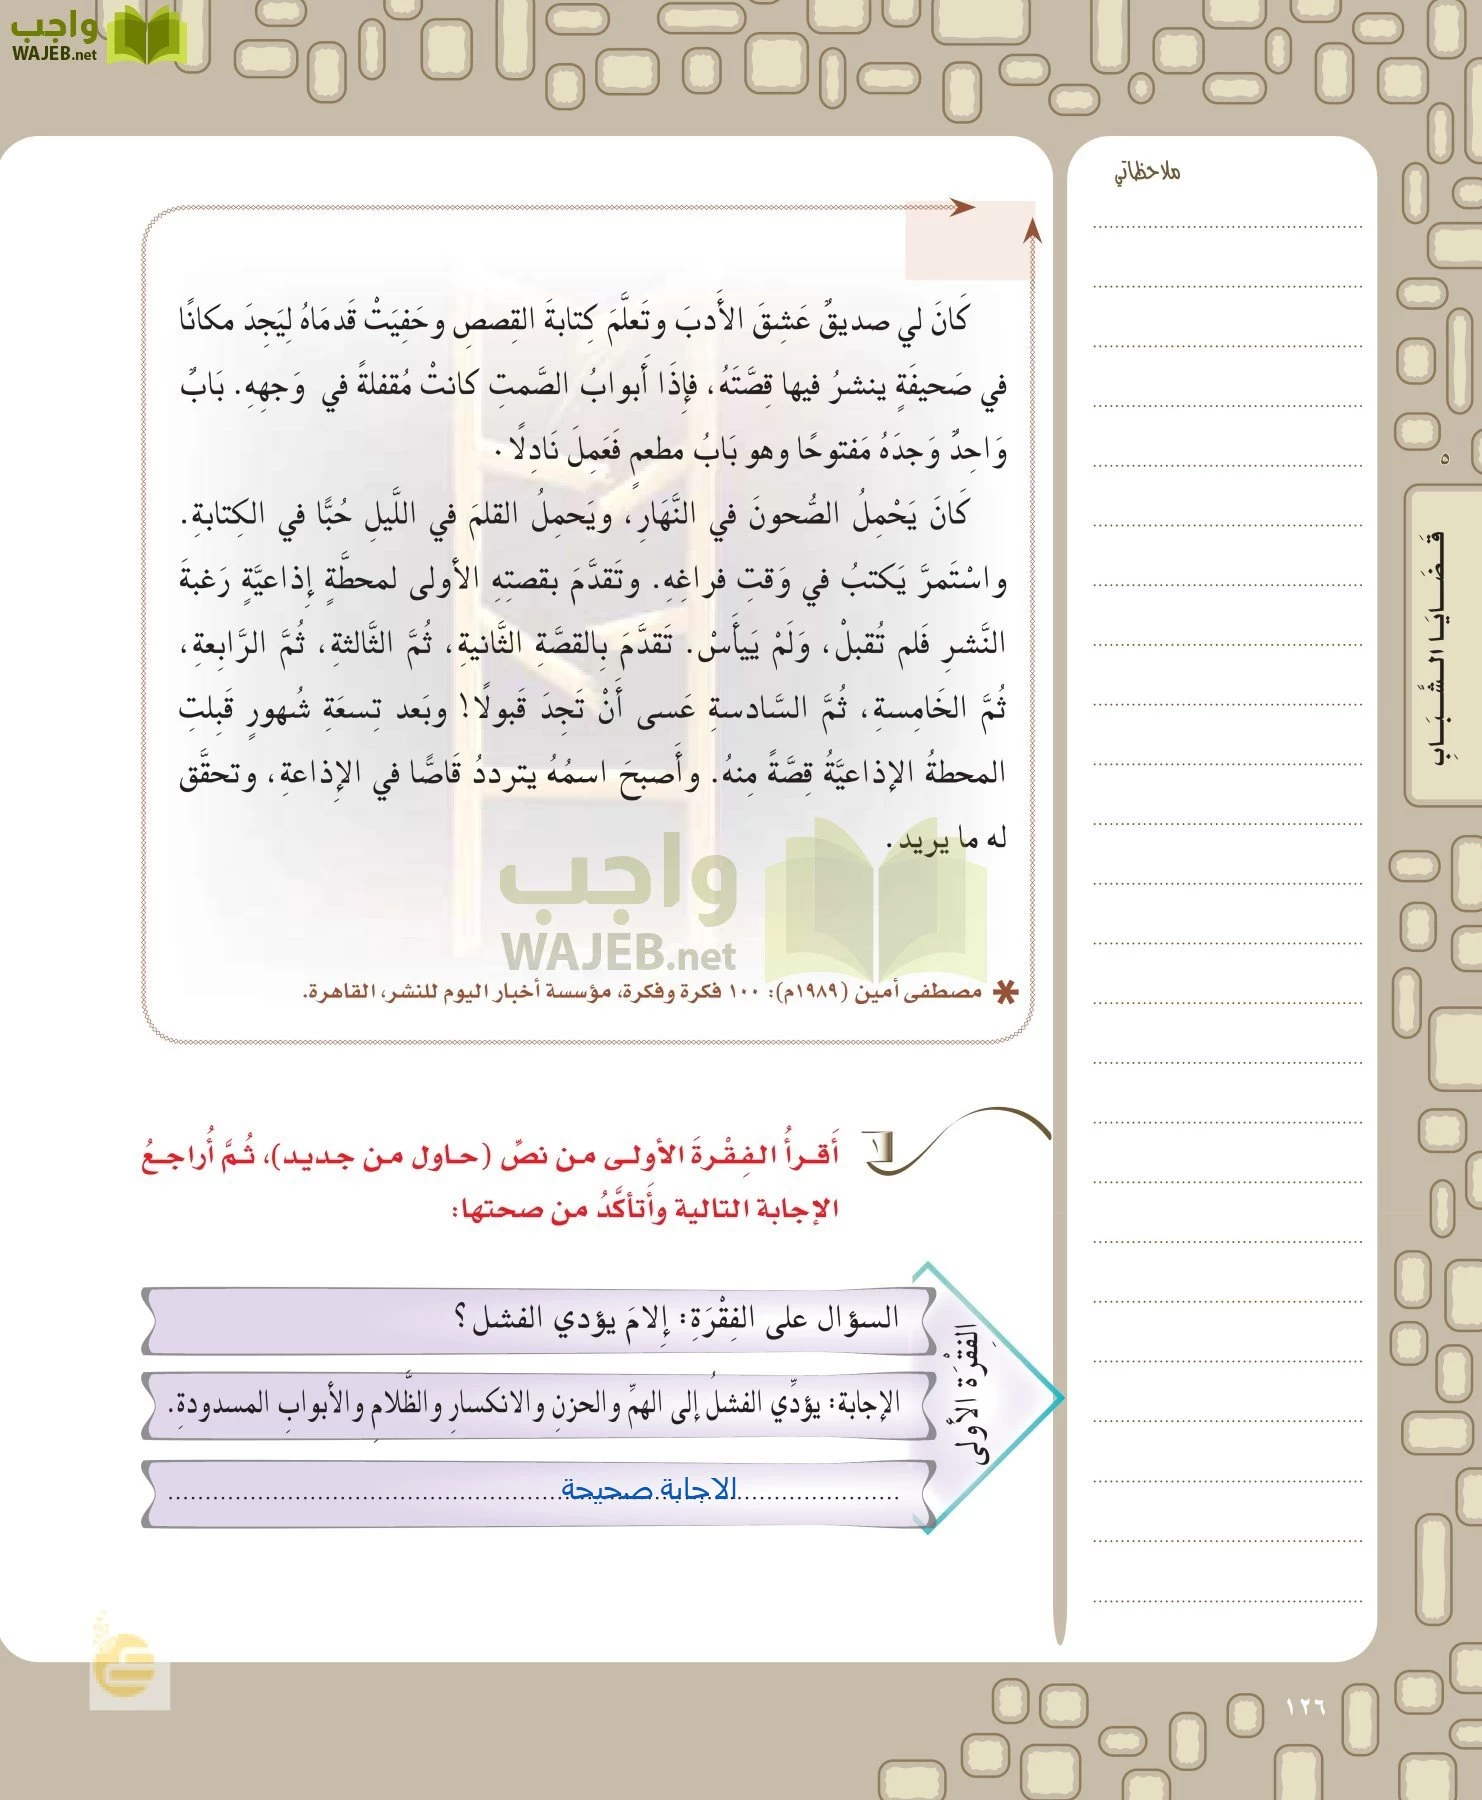 واجب
WAJEB.net
ملاحظاتي
كَانَ لي صديقٌ عَشِقَ الأَدبَ وتَعلَّمَ كِتابةَ القِصصِ وحَفِيَتْ قَدمَاهُ لِيَجِدَ مكانًا
في صَحيفَةٍ ينشرُ فيها قِصَّتَهُ، فإِذَا أَبوابُ الصَّمتِ كانتْ مُقفلةً في وَجهِهِ. بَابٌ
وَاحِدٌ وَجدَهُ مَفتوحًا وهو بَابُ مطعمٍ فَعَمِلَ نَادِلًا.
كَانَ يَحْمِلُ الصُّحونَ في النَّهَارِ، ويَحمِلُ القلمَ في اللَّيلِ حُبًّا في الكِتابةِ.
واسْتَمرَّ يَكتبُ في وَقتِ فراغِهِ. وتَقدَّمَ بقصتِهِ الأولى لمحطَّةٍ إِذاعيَّةٍ رَغبةَ
النَّشرِ فَلم تُقبلْ، وَلَمْ يَيأَسْ. تَقدَّمَ بِالقصَّةِ الثَّانيةِ، ثُمَّ الثَّالثةِ، ثُمَّ الرَّابعةِ،
ثُمَّ الخَامِسةِ، ثُمَّ السَّادسةِ عَسى أَنْ تَجِدَ قَبولًا! وبَعد تِسعَةِ شُهورٍ قَبِلتِ
المحطةُ الإذاعيَّةُ قِصَّةً مِنهُ. وأَصبحَ اسمُهُ يترددُ قَاصًّا في الإِذاعةِ، وتحقَّق
له ما يريد.
واجب
WAJEB.net
* مصطفى أمين (١٩٨٩م): ١٠٠ فكرة وفكرة، مؤسسة أخبار اليوم للنشر، القاهرة.
١ أَقرأُ الفِقْرةَ الأولى من نصِّ (حاول من جديد)، ثُمَّ أُراجعُ
الإجابة التالية وأَتأكَّدُ من صحتها:
الفِقْرَة الأولى
السؤال على الفِقْرَةِ: إِلامَ يؤدي الفشل؟
الإجابة: يؤدِّي الفشلُ إلى الهمِّ والحزنِ والانكسارِ والظَّلامِ والأبوابِ المسدودةِ.
الاجابة صحيحة
٥
قَـضَـايَـا الـشَّـبَـابِ
١٢٦